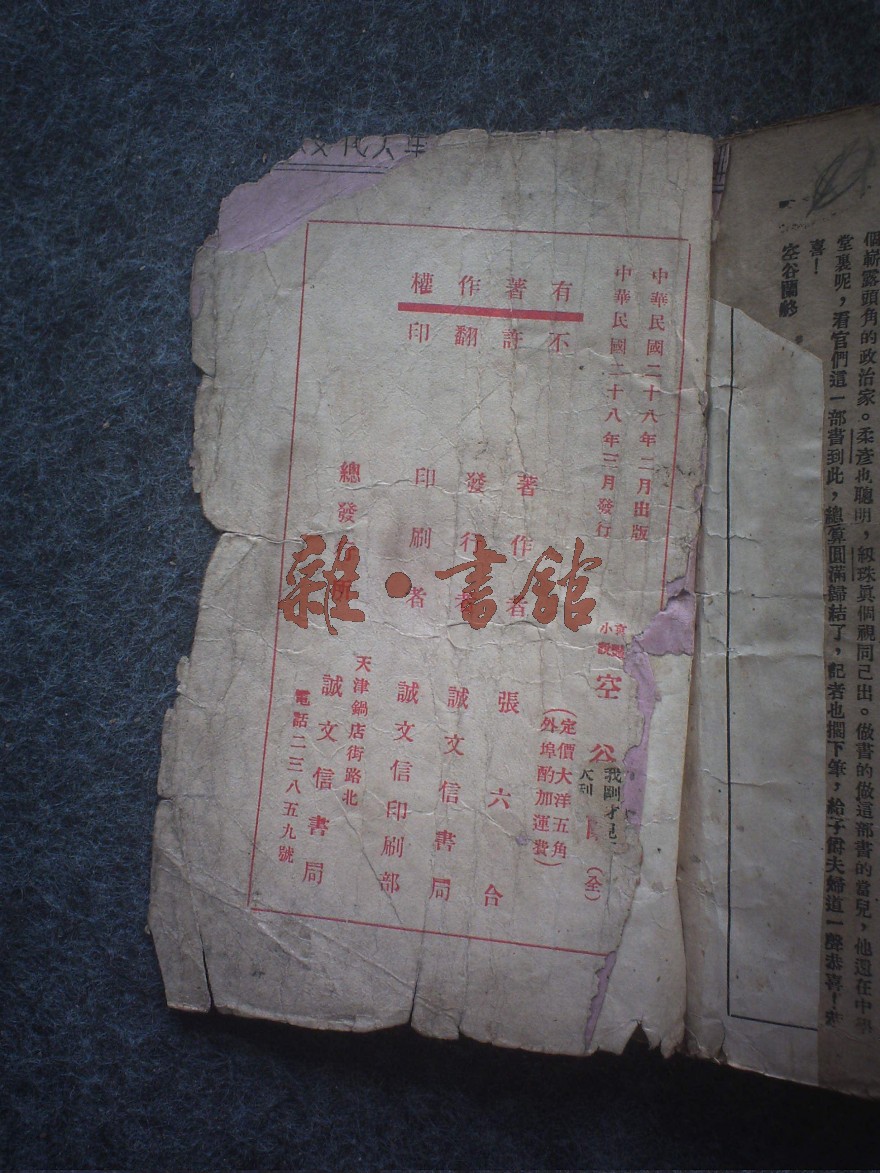 個嶄露頭角的政治家。柔彥也聰明，紉珠眞個視同己出。做書的做這部書的當兒，他還在中學
堂裏呢，看官們這一部書到此，總算圓滿歸結了，記者也擱下筆，給子爵夫婦道一聲恭喜！恭
喜！
空谷蘭終
中華民國二十八年二月出版
中華民國二十八年三月發行
有著作權
不許翻印
小說
空 谷 (全)
我剛才見
定價大洋五角
外埠酌加運費
著作者 張六合
發行者 誠文信書局
印刷者 誠文信印刷部
總發 所
天津鍋店街路北
誠文信書局
電話二三八五九號
雜·書館